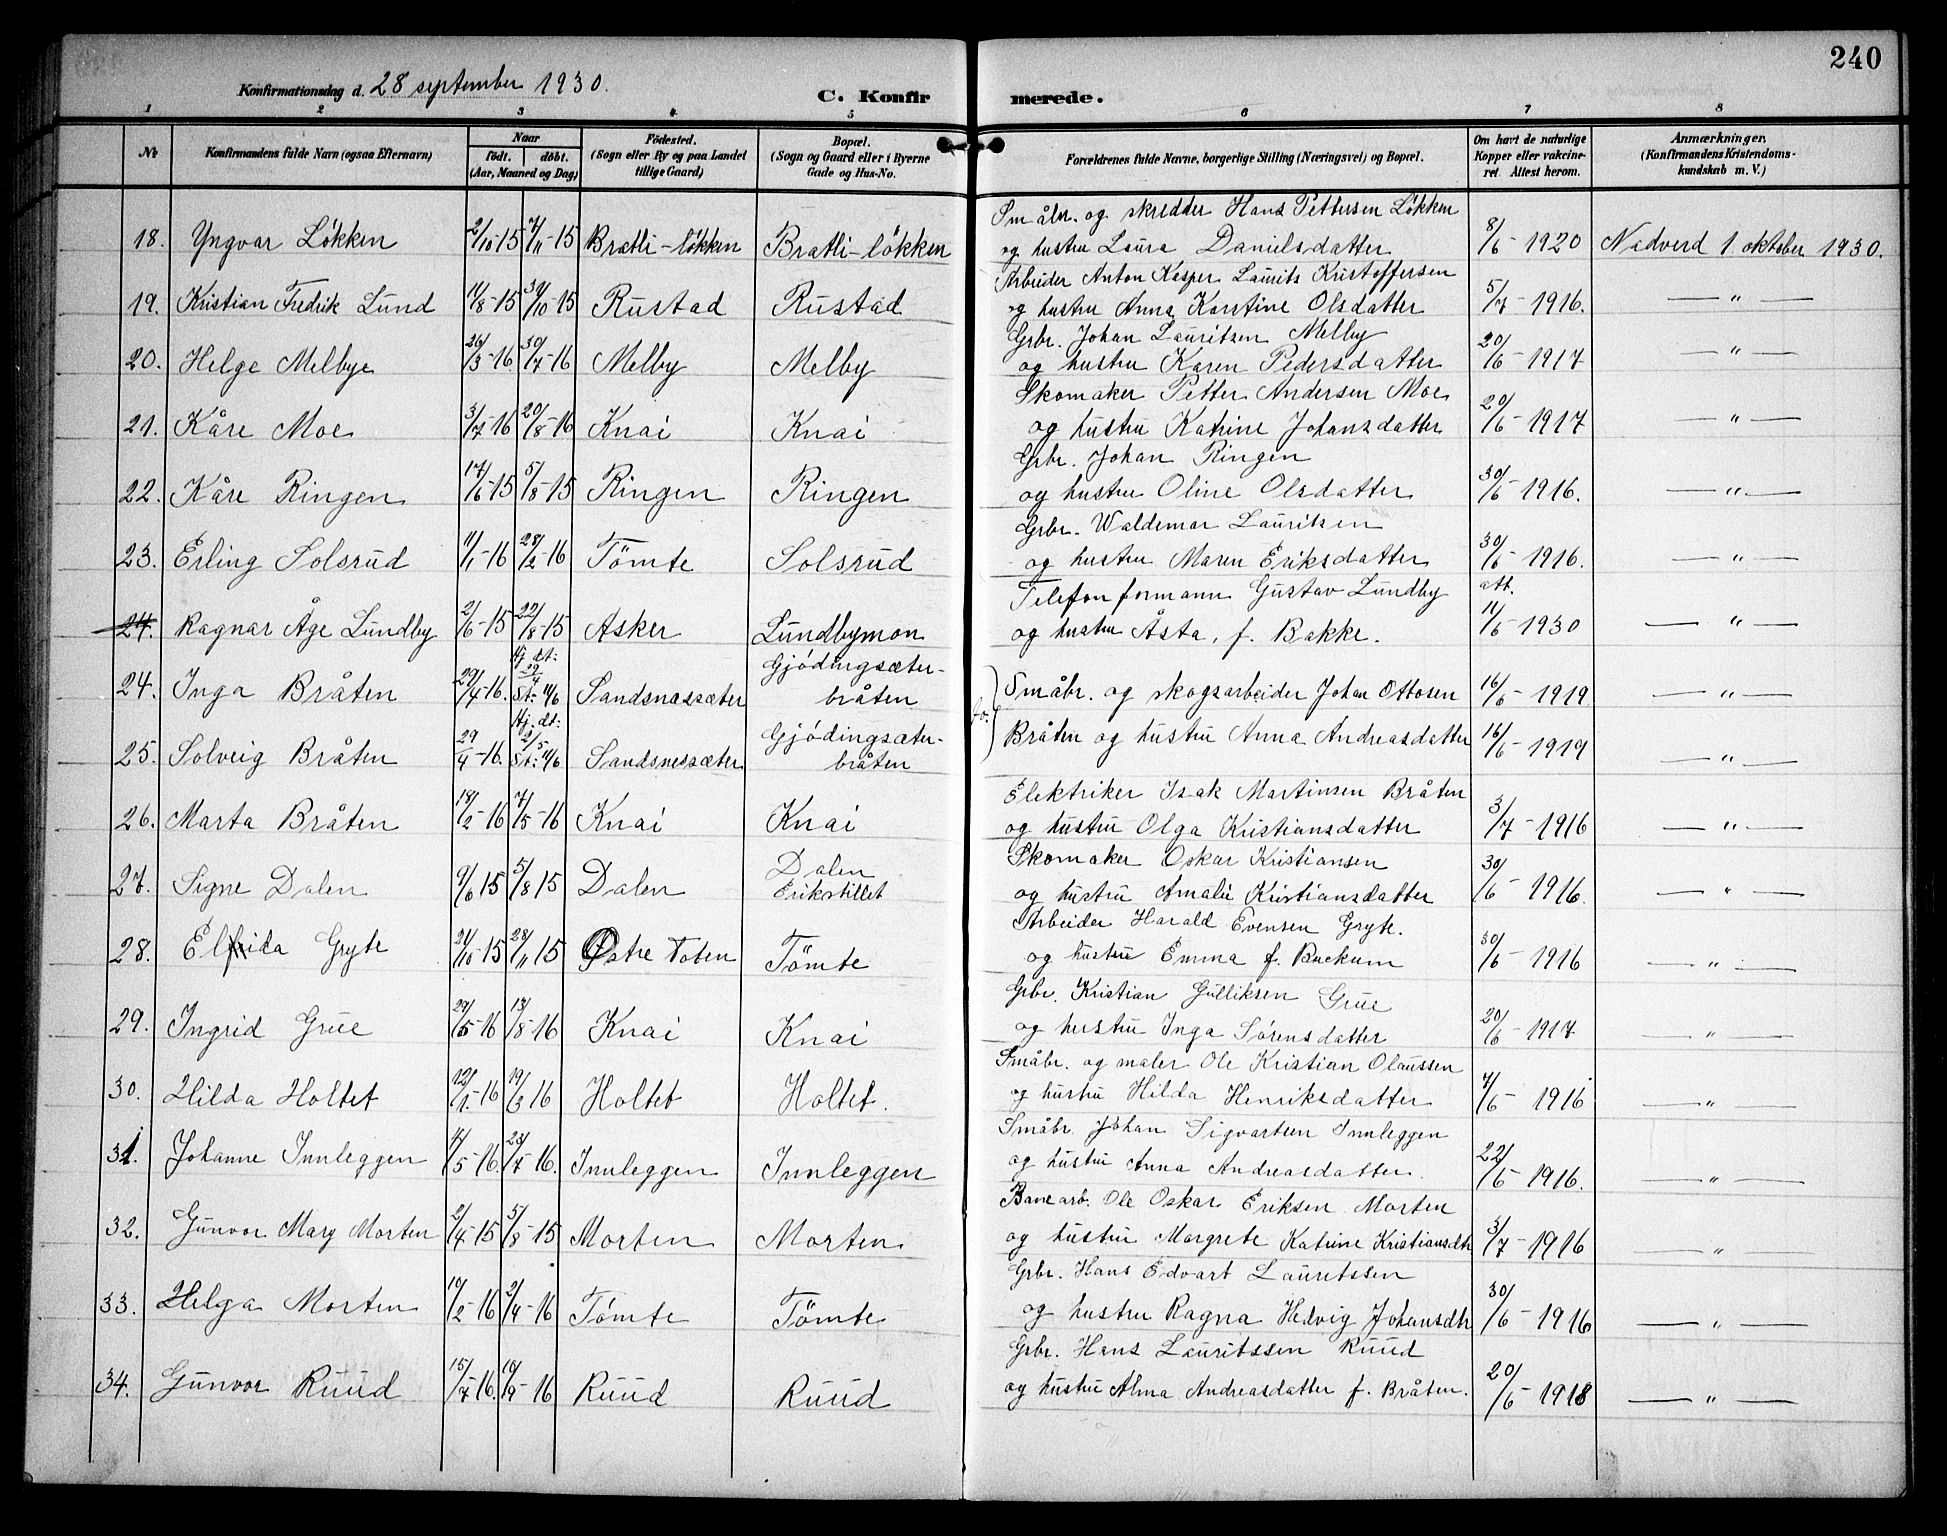 240
Konfirmationsdag d. 28 september 1930.
C. Konfirmerede.
1 2 3 4 5 6 7 8
No
Konfirmandens fulde Navn (ogsaa Efternavn)
Naar
født. døbt.
(Aar, Maaned og Dag)
Fødested.
(Sogn eller By og paa Landet
tillige Gaard)
Bopæl.
(Sogn og Gaard eller i Byerne
Gade og Hus-No.
Forældrenes fulde Navne, borgerlige Stilling (Næringsvei) og Bopæl.
Om havt de naturlige
Kopper eller vakcine-
ret. Attest herom.
Anmærkninger,
(Konfirmandens Kristendoms-
kundskab m. V.)
Småbr. og skredder Hans Pettersen Løkken
18. Yngvar Løkken 2/10-15 7/11-15 Brætli-løkken Bratli-løkken og hustru Laura Danielsdatter 8/6-1920 Nadverd 1. oktober 1930.
Arbeider Anton Kasper Laurits Kristoffersen
19. Kristian Fredrik Lund 11/8-15 30/10-15 Rustad Rustad og hustru Anna Karstine Olsdatter 5/7-1916. — " —
Grbr. Johan Lauritsen Melby
20. Helge Melbye 26/3-16 30/7-16 Melby Melby og hustru Karen Pedersdatter 20/6-1917 — " —
Skomaker Petter Andersen Moe
21. Kåre Moe 3/7-16 20/8-16 Knai Knai og hustru Katrine Johansdatter 20/6-1917 — " —
Grbr. Johan Ringen
22. Kåre Ringen 17/6-15 5/8-15 Ringen Ringen og hustru Oline Olsdatter 30/6-1916. — " —
Grbr. Waldemar Lauritsen
23. Erling Solsrud 11/1-16 28/2-16 Tømte Solsrud og hustru Maren Eriksdatter 30/6-1916. — " —
Telefonformann Gustav Lundby att.
24. Ragnar Åge Lundby 2/6-15 22/8-15 Asker Lundbymon og hustru Åsta, f. Bakke. 11/6-1930 — " —
Hj. dt: Gjødingsæter-
24. Inga Bråten 29/4-16. 29/4 St: 11/6 Sandsnessæter bråten Småbr. og skogsarbeider Johan Ottosen 16/6-1919 — " —
Hj. dt: Gjødingsæter-
25. Solveig Bråten 29/4-16. 2/5 St: 11/6 Sandsnessæter bråten Bråten og hustru Anna Andreasdatter 16/6-1919 — " —
Elektriker Isak Martinsen Bråten
26. Marta Bråten 18/2-16 7/5-16 Knai Knai og hustru Olga Kristiansdatter 3/7-1916 — " —
Dalen Skomaker Oskar Kristiansen
27. Signe Dalen 9/6 15 5/8 15 Dalen Erikstillet og hustru Amalie Kristiansdatter 30/6-1916. — " —
Arbeider Harald Evensen Gryte.
28. Elfrida Gryte 21/10 15 28/11 15 Østre Toten Tømte og hustru Emma f. Buckum 30/6-1916 — " —
Grbr. Kristian Gulliksen Grue
29. Ingrid Grue 29/5-16 13/8-16 Knai Knai og hustru Inga Sørensdatter 20/6-1917 — " —
Småbr. og maler Ole Kristian Olaussen
30. Hilda Holtet 12/1-16 19/3 16 Holtet Holtet. og hustru Hilda Henriksdatter 7/6-1916 — " —
Småbr. Johan Sigvartsen Innleggen
31. Johanne Innleggen 4/5-16. 23/7-16. Innleggen Innleggen og hustru Anna Andreasdatter. 22/6-1916. — " —
Banearb. Ole Oskar Eriksen Morten
32. Gunvor Mary Morten 2/4-15 5/8-15 Morten Morten og hustru Margrete Katrine Kristiansdtr 3/7-1916 — " —
Grbr. Hans Edvart Lauritssen
33. Helga Morten 19/2-16 2/4-16 Tømte Tømte og hustru Ragna Hedvig Johansdtr 30/6-1916 — " —
Grbr. Hans Lauritssen Ruud
34. Gunvor Ruud 15/7-16. 10/9-16 Ruud Ruud og hustru Alma Andreasdatter f. Bråten. 20/6-1918 — " —